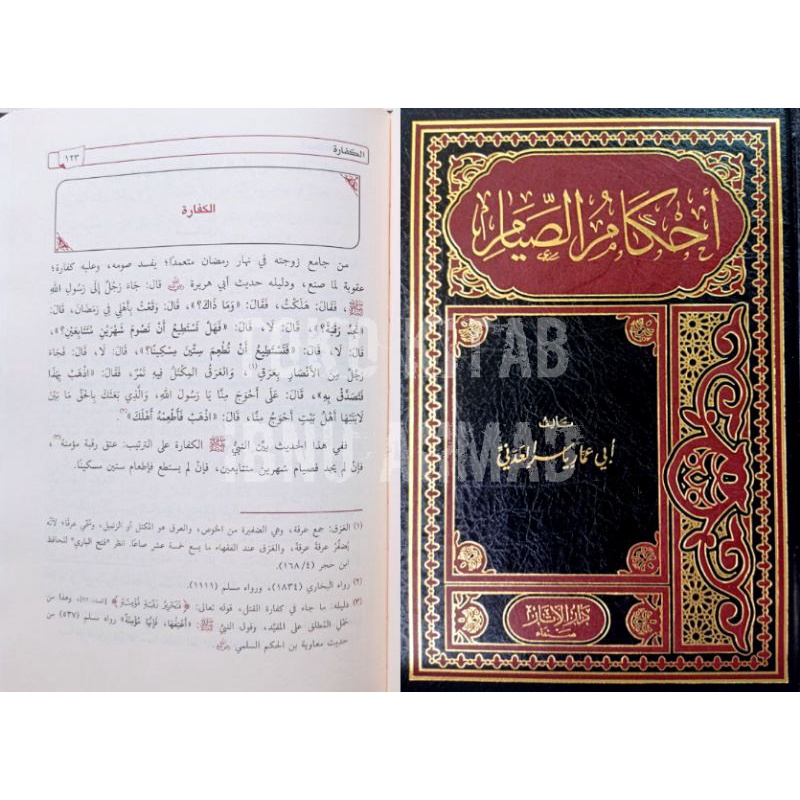 الكفارة
١٢٣
الكفارة
من جامع زوجته في نهار رمضان متعمدًا؛ يفسد صومه، وعليه كفارة؛
عقوبة لما صنع، ودليله حديث أبي هريرة رضي الله عنه قال: جَاءَ رَجُلٌ إِلَى رَسُولِ اللهِ
ﷺ، فَقَالَ: هَلَكْتُ، فَقَالَ: «وَمَا ذَاكَ؟»، قَالَ: وَقَعْتُ بِأَهْلِي فِي رَمَضَانَ، قَالَ:
«تَجِدُ رَقَبَةً؟»، قَالَ: لَا، قَالَ: «فَهَلْ تَسْتَطِيعُ أَنْ تَصُومَ شَهْرَيْنِ مُتَتَابِعَيْنِ؟»،
قَالَ: لَا، قَالَ: «فَتَسْتَطِيعُ أَنْ تُطْعِمَ سِتِّينَ مِسْكِينًا؟»، قَالَ: لَا، قَالَ: فَجَاءَ
رَجُلٌ مِنَ الْأَنْصَارِ بِعَرَقٍ(١)، وَالعَرَقُ المِكْتَلُ فِيهِ تَمْرٌ، فَقَالَ: «اذْهَبْ بِهَذَا
فَتَصَدَّقْ بِهِ»، قَالَ: عَلَى أَحْوَجَ مِنَّا يَا رَسُولَ اللهِ، وَالَّذِي بَعَثَكَ بِالحَقِّ مَا بَيْنَ
لَابَتَيْهَا أَهْلُ بَيْتٍ أَحْوَجُ مِنَّا، قَالَ: «اذْهَبْ فَأَطْعِمْهُ أَهْلَكَ»(٢).
ففي هذا الحديث بيَّن النبيُّ ﷺ الكفارة على الترتيب: عتق رقبة مؤمنة(٣)،
فإنْ لم يجد فصيام شهرين متتابعين، فإنْ لم يستطع فإطعام ستين مسكينًا.
(١) العَرَق: جمع عرقة، وهي الضفيرة من الخوص، والعرق هو المكتل أو الزنبيل، وسُمِّي عرقًا؛ لأنَّه
يُضفَّرُ عرقةً عرقةً، والعَرَق عند الفقهاء ما يسع خمسة عشر صاعًا. انظر "فتح الباري" للحافظ
ابن حجر (١٦٨/٤).
(٢) رواه البخاري (١٨٣٤)، ورواه مسلم (١١١١).
(٣) دليله: ما جاء في كفارة القتل، قوله تعالى: ﴿فَتَحْرِيرُ رَقَبَةٍ مُؤْمِنَةٍ﴾ وهذا من
حَمْل المُطلق على المقيَّد، وقول النبي ﷺ: «أَعْتِقْهَا، فَإِنَّهَا مُؤْمِنَةٌ» رواه مسلم (٥٣٧) من
حديث معاوية بن الحكم السلمي رضي الله عنه.
أحكام الصيام
تأليف
أبي عمار ياسر العدني
دار الآثار
صنعاء
TOKO KITAB
IBNU AHMAD